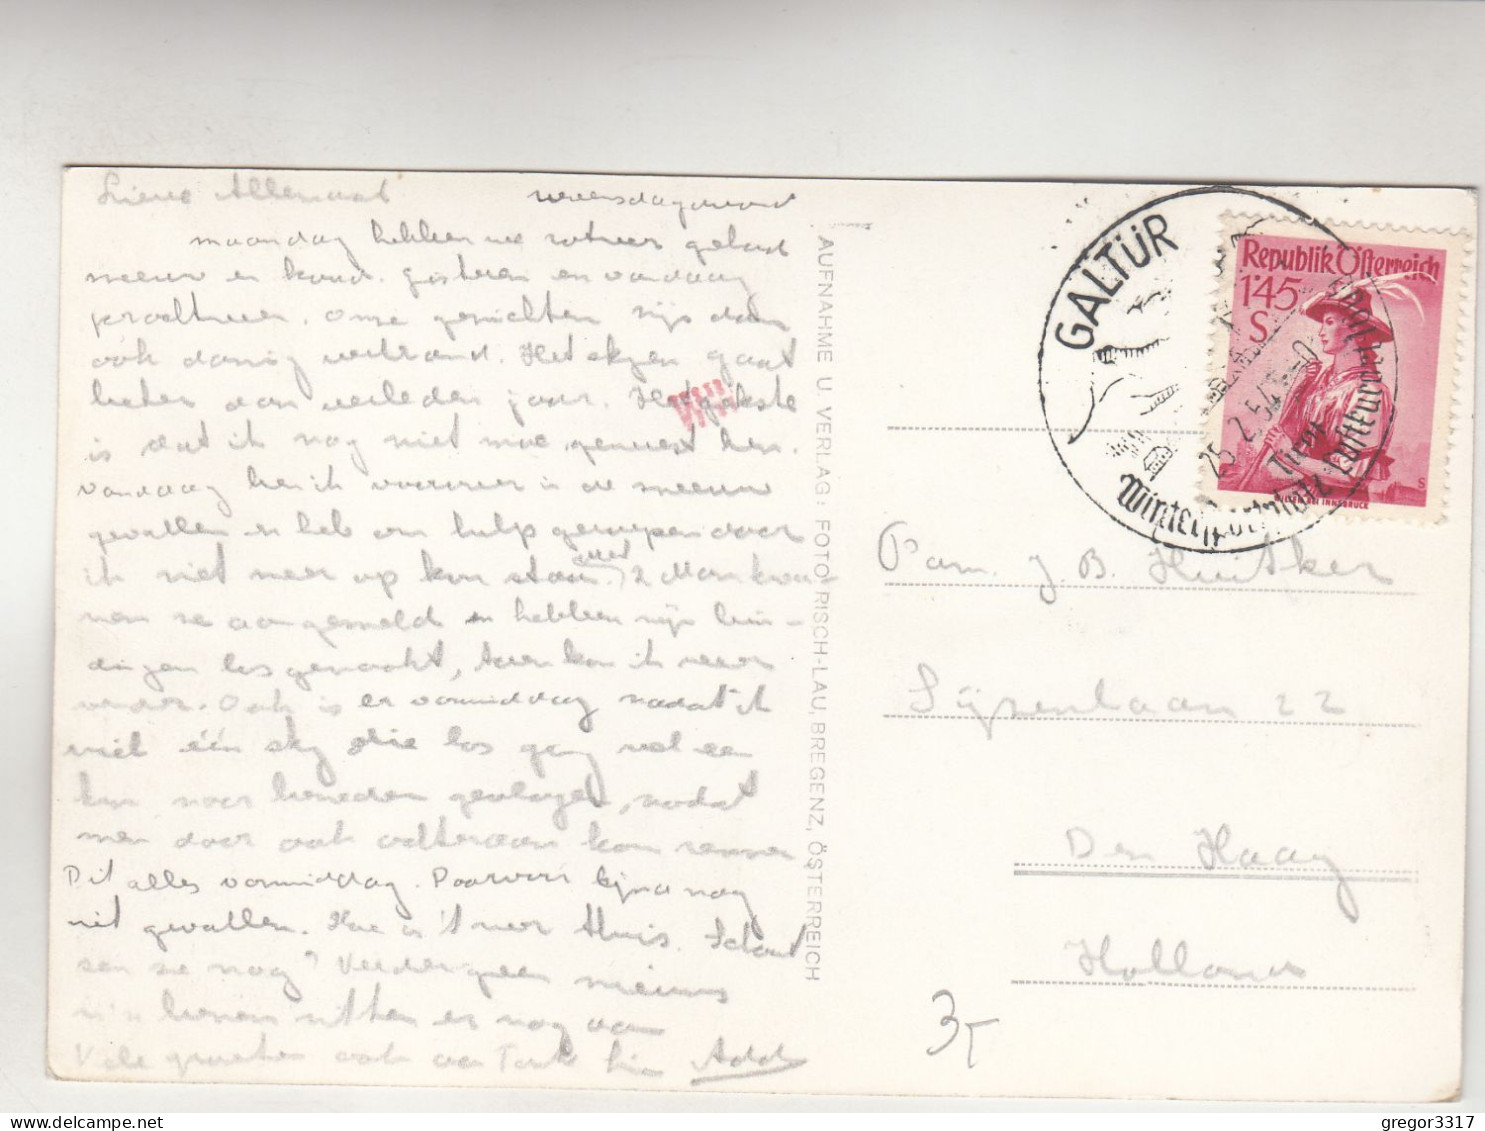 Lieve Allemaal woensdagavond
maandag hebben we gehad
sneeuw en koud. gisteren en vandaag
prachtweer. Onze gezichten zijn dan
ook danig verbrand. Het skyen gaat
beter dan verleden jaar. Het gekste
is dat ik nog niet moe geweest ben.
Vandaag ben ik voorover in de sneeuw
gevallen en heb om hulp geroepen daar
ik niet meer op kon staan. 2 Man kwa-
men se aangesneld en hebben mijn bin-
dingen los gemaakt, toen kon ik weer
verder. Ook is er vanmiddag nadat ik
viel één sky die los ging wel een
km naar beneden gevlogen, zodat
men daar ook achteraan kon rennen
Dit alles vanmiddag. Daarvoor bijna nog
niet gevallen. Hoe is 't met thuis. Schaat
sen ze nog? Verder geen nieuws
Vele groeten ook aan Tante
AUFNAHME U. VERLAG: FOTO RISCH-LAU, BREGENZ, ÖSTERREICH
GALTÜR
25.2.54
Tirol
Wintersportplatz Luftkurort
Republik Österreich
1'45
S
Fam. J. B. Huitker
Sijzenlaan 22
Den Haag
Holland
3,-
gregor3317